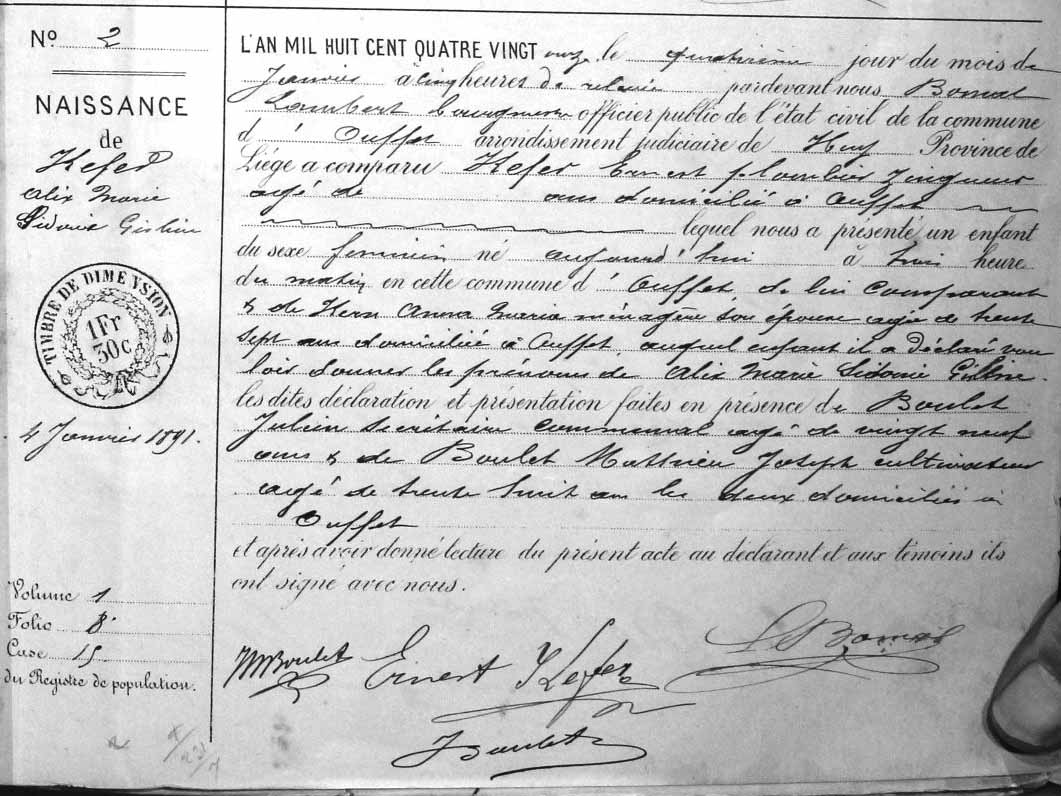 N° 2
NAISSANCE
de
Kefer
Alix Marie
Sidonie Gisline
TIMBRE DE DIMENSION
1Fr
30c
4 Janvier 1891.
Volume 1
Folio 8
Case 15
du Registre de population.
L'AN MIL HUIT CENT QUATRE VINGT onze le quatrième jour du mois de
Janvier à cinq heures de relevée pardevant nous Bomal
Lambert bourgmestre officier public de l'état civil de la commune
d' Ouffet arrondissement judiciaire de Huy Province de
Liége a comparu Kefer Ernest plombier zingueur
agé de ans domicilié à Ouffet
lequel nous a présenté un enfant
du sexe féminin né aujourd'hui à huit heure
du matin en cette commune d' Ouffet de lui comparant
& de Kern Anna Maria ménagère son épouse agée de trente
sept ans domiciliée à Ouffet, auquel enfant il a déclaré vou
loir donner les prénoms de Alix Marie Sidonie Gisline.
les dites déclaration et présentation faites en présence de Boulet
Julien secrétaire communal agé de vingt neuf
ans & de Boulet Mathieu Joseph cultivateur
agé de trente huit ans les deux domiciliés à
Ouffet
et après avoir donné lecture du présent acte au déclarant et aux témoins ils
ont signé avec nous.
MBoulet Ernest Kefer L Bomal
J Boulet